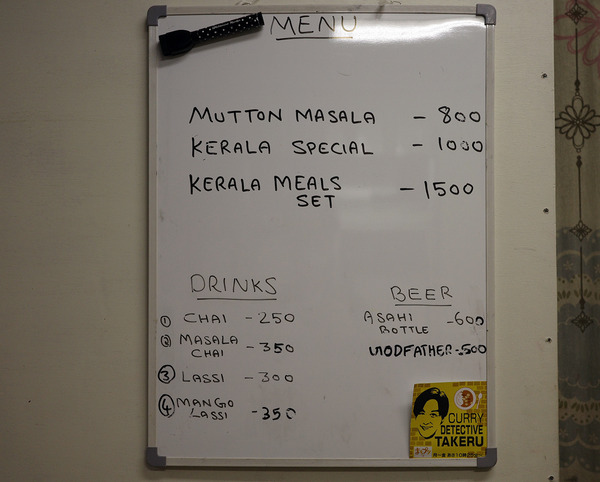 MENU
MUTTON MASALA - 800
KERALA SPECIAL - 1000
KERALA MEALS - 1500
SET
DRINKS
① CHAI - 250
② MASALA - 350
CHAI
③ LASSI - 300
④ MANGO - 350
LASSI
BEER
ASAHI - 600
BOTTLE
GODFATHER - 500
CURRY
DETECTIVE
TAKERU